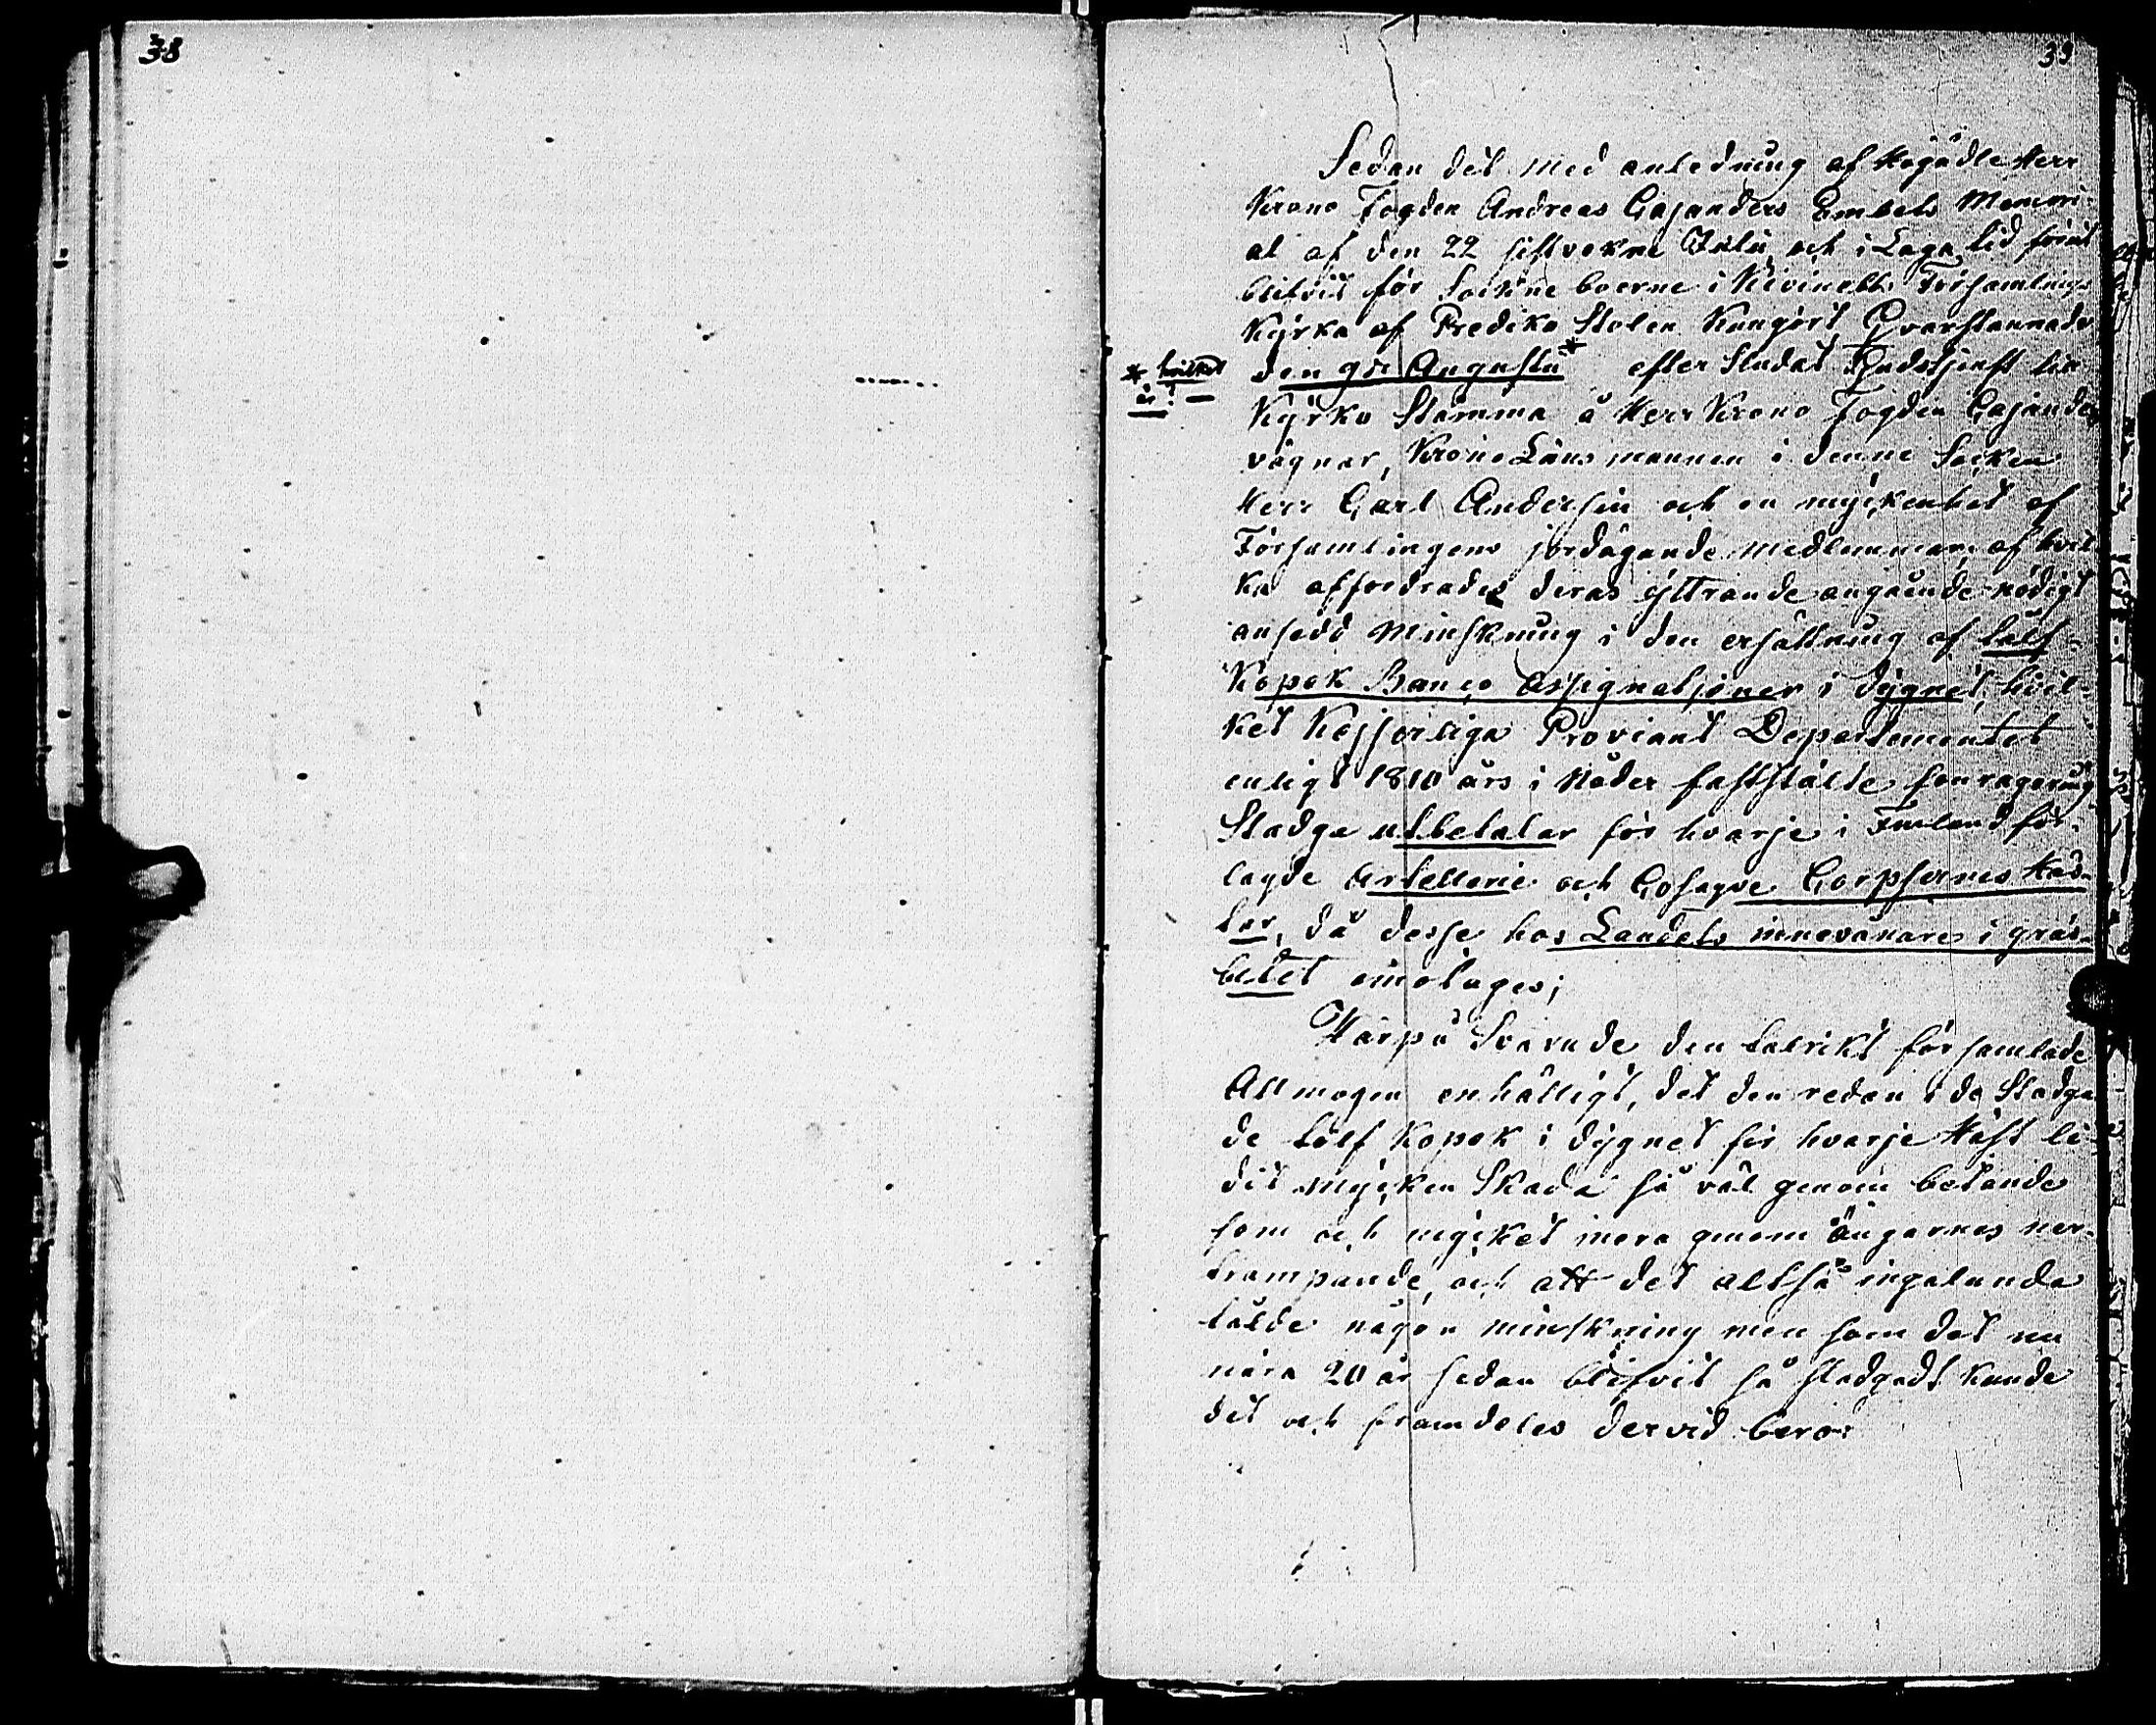 38
39
Sedan det med anledning af Högädle Herr
Krono Fogden Andreas Cajanders Embets Memori-
al af den 22 sistvekne Julii och i Laga tid förut
blifvit för Sockne boerne i Kivinebb Församlings
Kyrka af Prediko Stolen Kungjort Qvarstannade
den 9de Augustii* efter Slutat Gudstjenst till
* hvilket
år?
Kyrko Stämma å Herr Krono Fogden Cajanders
vägnar, Krono Länsmannen i denne Socken
Herr Carl Andersin och en myckenhet af
Församlingens jordägande medlemmar, af hvil-
ka affordrades deras yttrande angående nödigt
ansedd Minskning i den ersättning af tolf
Kopek Banco Assignatjoner i dygnet, hvil-
ket Kejserliga Proviant Departementet
enligt 1810 års i Nåder fastställte fouragerings
Stadga utbetalar för hvarje i Finland för-
lagde Artellerie och Cosaque Corpsernes Häs-
tar, då desse hos Landets innevånare i gräs-
betet emotages;
Härpå Svarade den talrikt församlade
Allmogen enhälligt, det den redan i de Stadga
de tolf Kopek i dygnet för hvarje Häst li-
dit mycken Skada så väl genom betande
som och mycket mera genom ängarnes ner-
trampande, och att det altså ingalunda
tålde någon minskning men som det nu
nära 20 år sedan blifvit så stadgadt kunde
det och framdeles dervid bero: